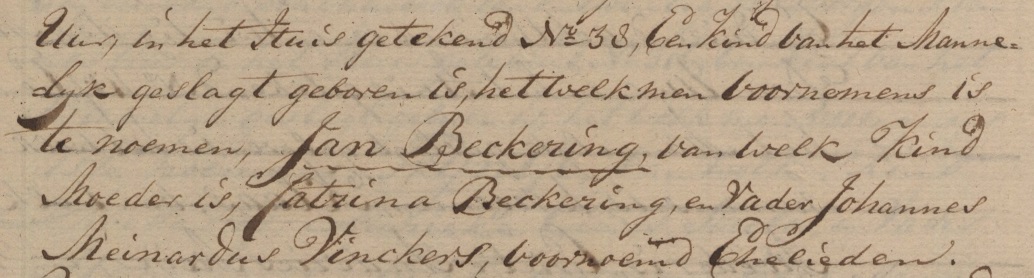 Uur, in het Huis getekend No 38, Een kind van het Manne=
lyk geslagt geboren is, het welk men voornemens is
te noemen, Jan Beckering, van welk Kind
Moeder is, Catrina Beckering, en Vader Johannes
Meinardus Vinckers, voornoemd Ehelieden.